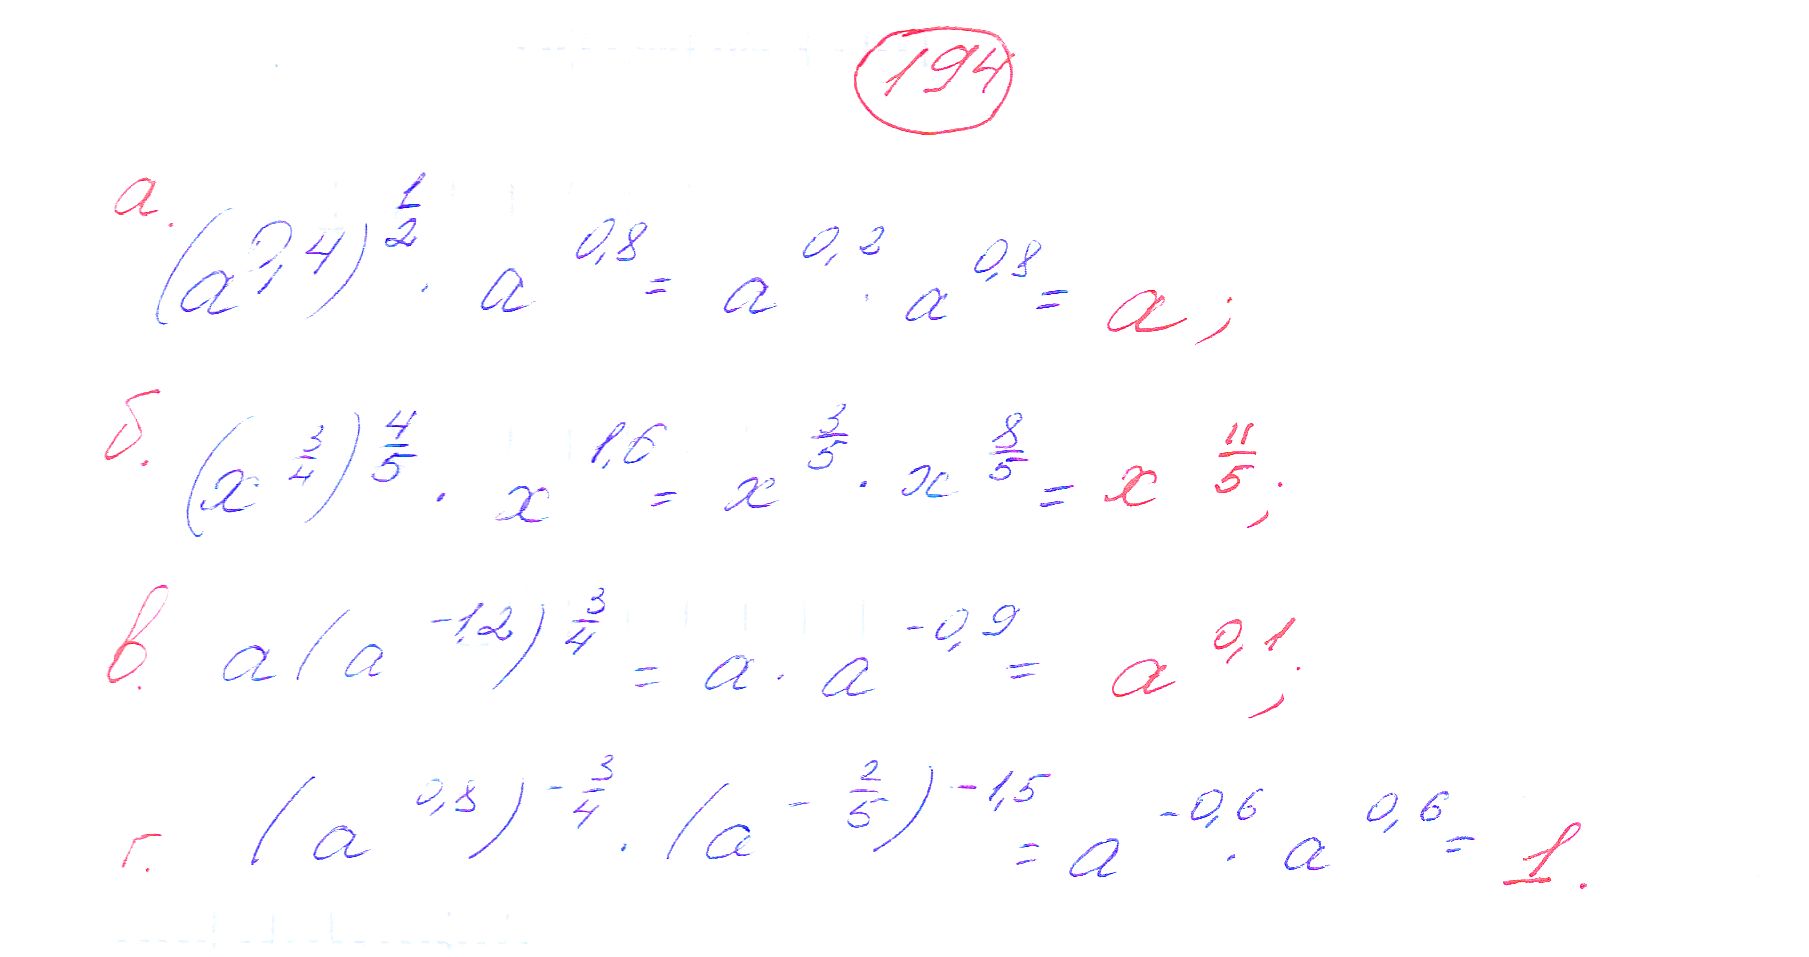 194
а. (a^{0,4})^{\frac{1}{2}} · a^{0,8} = a^{0,2} · a^{0,8} = a;
б. (x^{\frac{3}{4}})^{\frac{4}{5}} · x^{1,6} = x^{\frac{3}{5}} · x^{\frac{8}{5}} = x^{\frac{11}{5}};
в. a(a^{-1,2})^{\frac{3}{4}} = a · a^{-0,9} = a^{0,1};
г. (a^{0,8})^{-\frac{3}{4}} · (a^{-\frac{2}{5}})^{-1,5} = a^{-0,6} · a^{0,6} = 1.